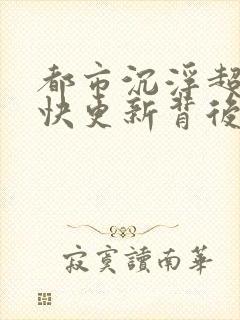 都市沉浮超
快更新背後
寂寞讀南華